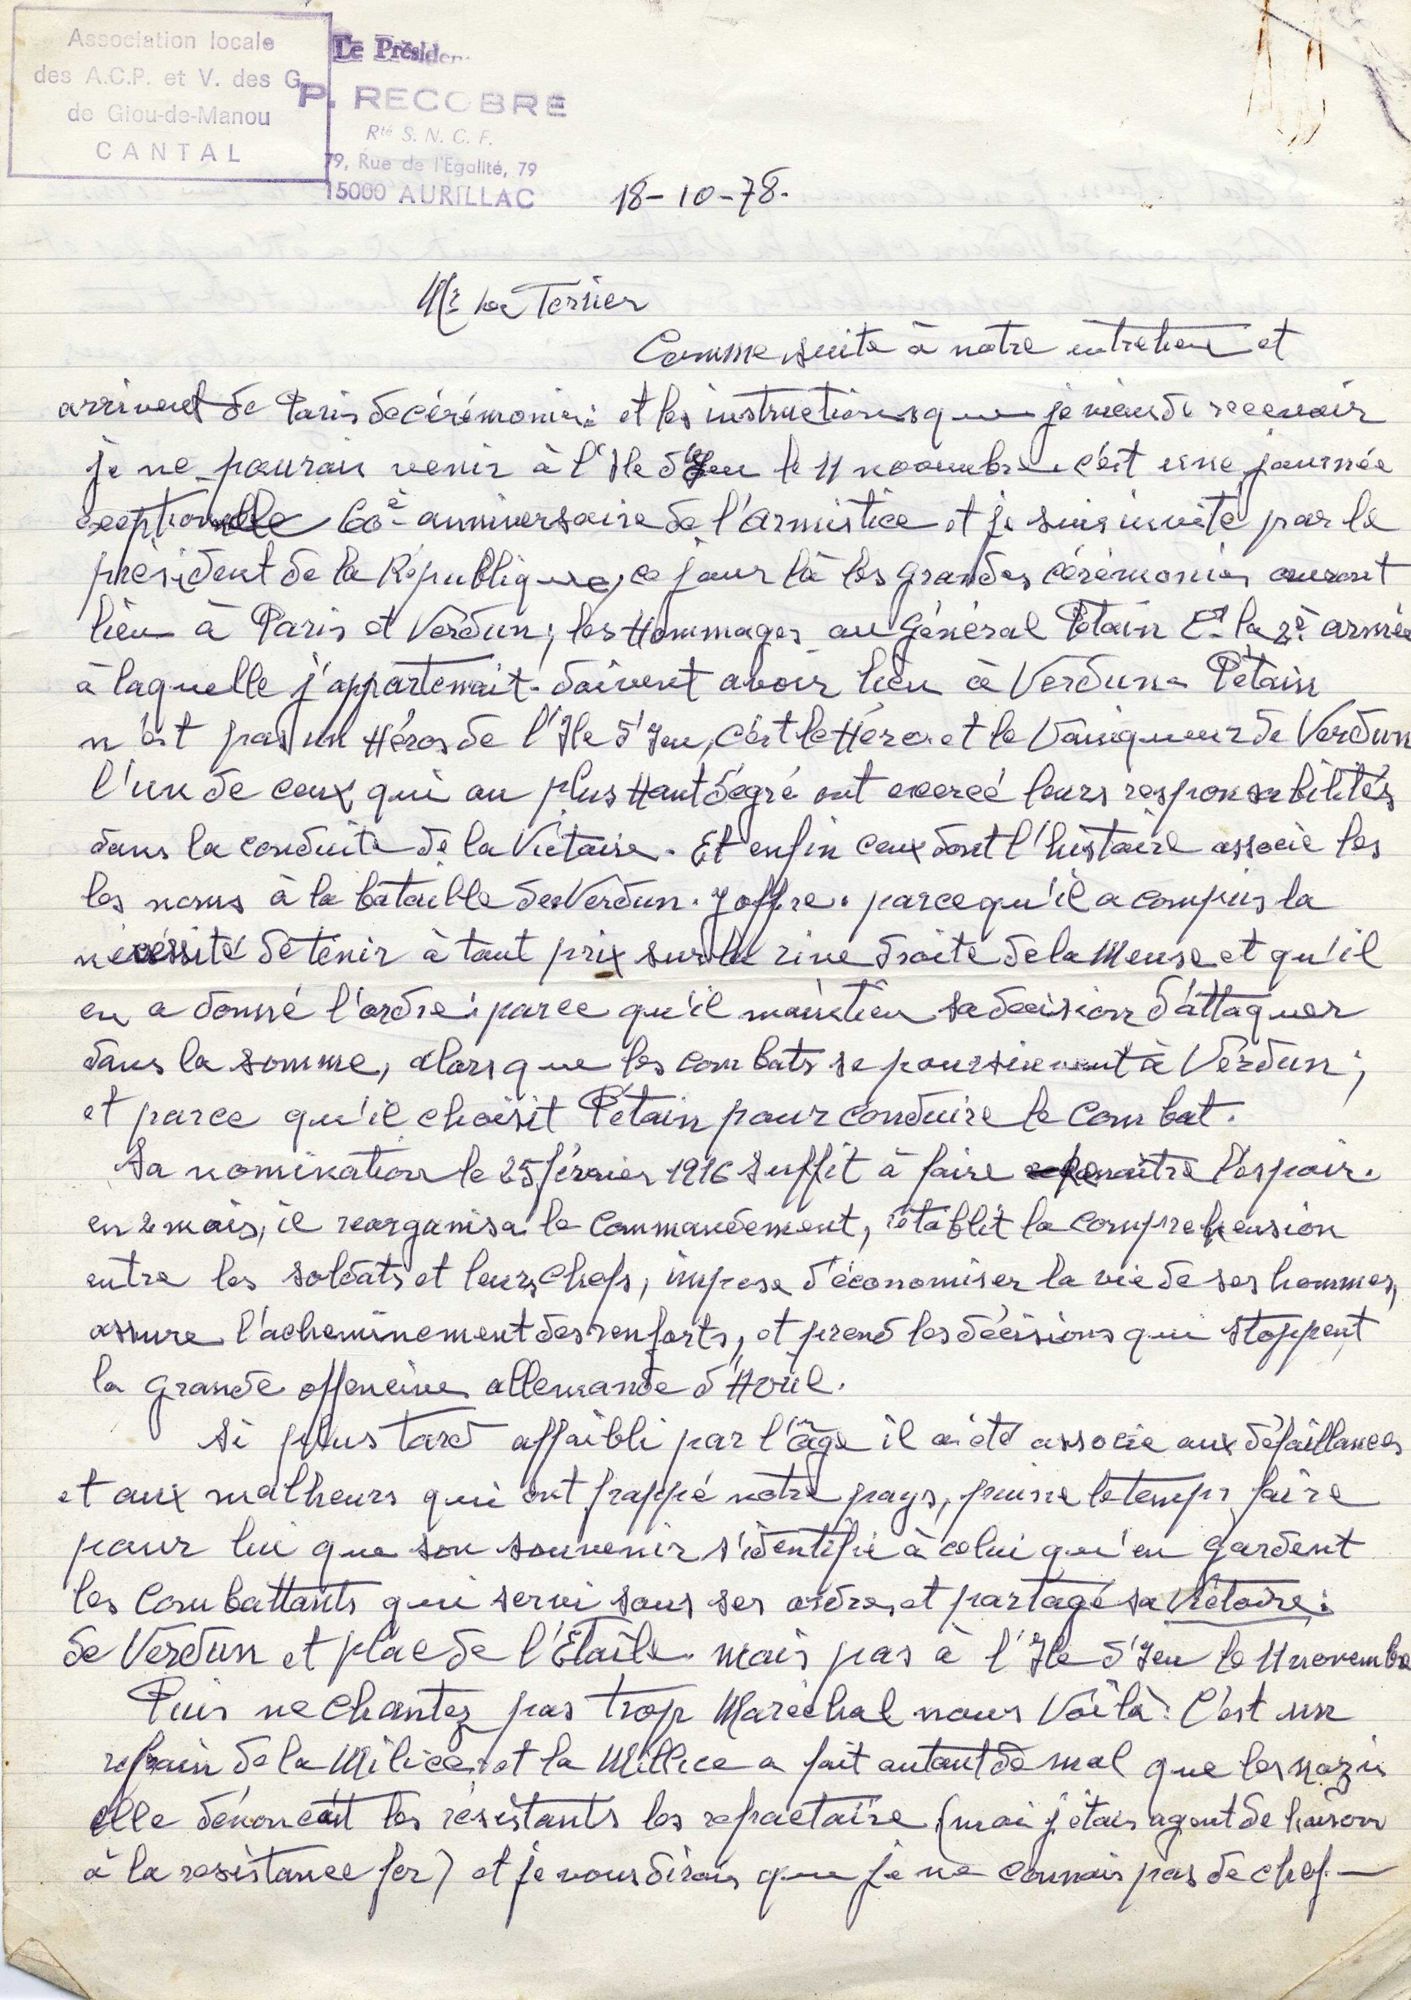 Association locale
des A.C.P. et V. des G.
de Giou-de-Manou
CANTAL
Le Présiden
P. RECOBRE
Rté S. N. C. F.
79, Rue de l'Egalité, 79
15000 AURILLAC
18-10-78.
Mr Le Terrier
Comme suite à notre entretien et
arrivent de Paris de cérémonie: et les instructions que je viens de recevoir
je ne pourais venir à l'Ile d'Yeu le 11 noovembre c'est une journée
exeptionnelle 60è anniversaire de l'Armistice et je suis invité par le
président de la République, ce jour là les grandes cérémonies auront
lieu à Paris et Verdun; les Hommages au Général Pétain Ct la 2è armée
à laquelle j'appartenait. doivent avoir lieu à Verdun. Pétain
n'est pas un Héros de l'Ile d'Yeu, c'est le Héros et le Vainqueur de Verdun
l'un de ceux qui au plus Haut dégré ont exercé leurs responsabilités
dans la conduite de la Victoire. Et enfin ceux dont l'histoire associe les
les noms à la bataille de Verdun. Joffre. parce qu'il a compris la
nécéssité de tenir à tout prix sur la rive droite de la Meuse et qu'il
en a donné l'ordre; parce qu'il maintien sa décision d'attaquer
dans la somme, alors que les combats se poursuivent à Verdun;
et parce qu'il choisit Pétain pour conduire le combat.
Sa nomination le 25 février 1916 suffit à faire renaître l'espoir.
en 2 mois, il reorganisa le commandement, rétablit la comprehension
entre les soldats et leurs chefs, impose d'économiser la vie de ses hommes,
assure l'acheminement des renforts, et prend les décisions qui stoppent
la grande offencive allemande d'Avril.
Si plus tard affaibli par l'âge il a été associé aux défaillances
et aux malheurs qui ont frappé notre pays, puisse le temps faire
pour lui que son souvenir s'identifie à celui qu'en gardent
les combattants qui servi sous ses ordres et partagé sa Victoire:
de Verdun et place de l'Etoile. mais pas à l'Ile d'Yeu le 11 novembre
Puis ne chantez pas trop Maréchal nous Voilà. C'est un
refrain de la Milice et la Millice a fait autant de mal que les nazis
elle dénoncait les résistants les refractaire (moi j'étais agent de liaison
à la resistance fer) et je vous dirais que je ne connais pas de chef